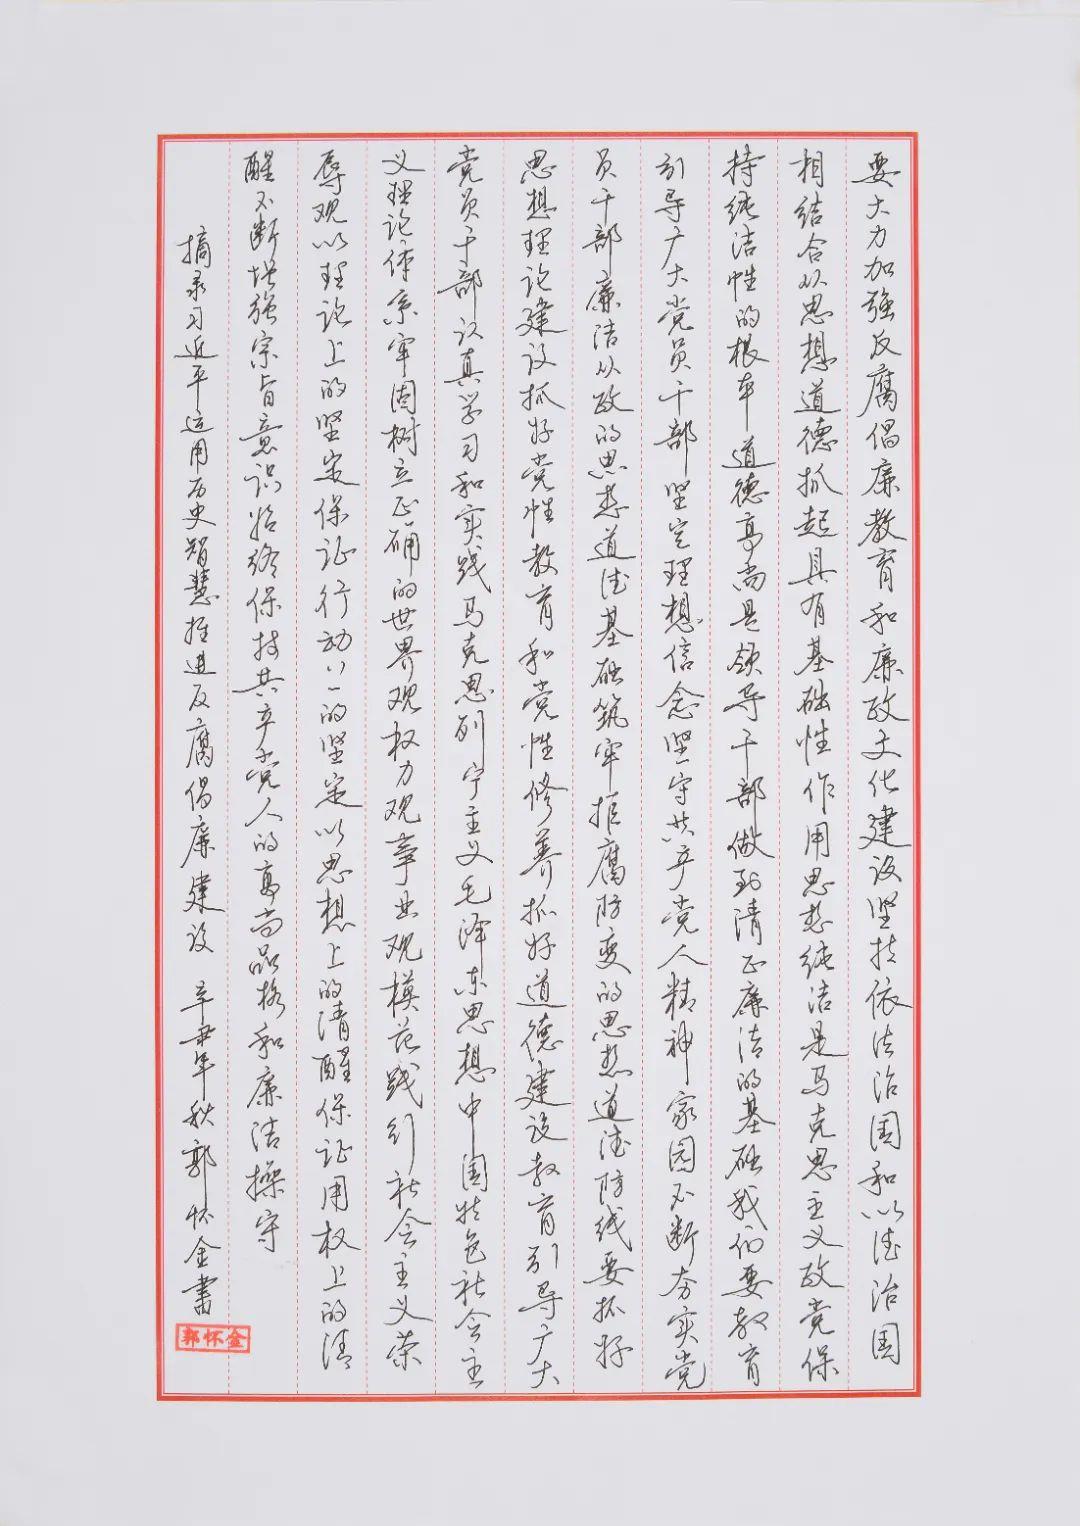 要大力加强反腐倡廉教育和廉政文化建设坚持依法治国和以德治国
相结合从思想道德抓起具有基础性作用思想纯洁是马克思主义政党保
持纯洁性的根本道德高尚是领导干部做到清正廉洁的基础我们要教育
引导广大党员干部坚定理想信念坚守共产党人精神家园不断夯实党
员干部廉洁从政的思想道德基础筑牢拒腐防变的思想道德防线要抓好
思想理论建设抓好党性教育和党性修养抓好道德建设教育引导广大
党员干部认真学习和实践马克思列宁主义毛泽东思想中国特色社会主
义理论体系牢固树立正确的世界观权力观事业观模范践行社会主义荣
辱观以理论上的坚定保证行动上的坚定以思想上的清醒保证用权上的清
醒不断增强宗旨意识始终保持共产党人的高尚品格和廉洁操守
摘录习近平运用历史智慧推进反腐倡廉建设 辛丑年秋郭怀金书
郭怀金